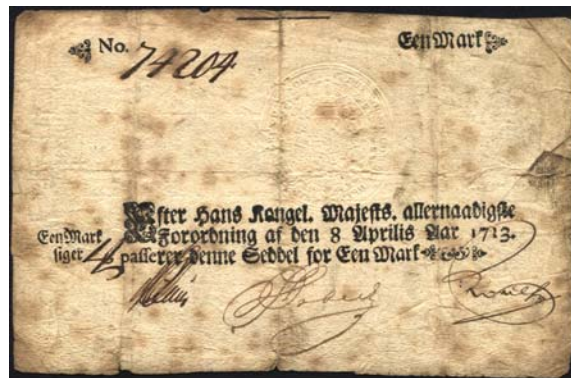 No. 74204
Een Mark
Efter Hans Kongel. Majests. allernaadigste
Een Mark
Forordning af den 8 Aprilis Aar 1713.
siger
passerer denne Seddel for Een Mark